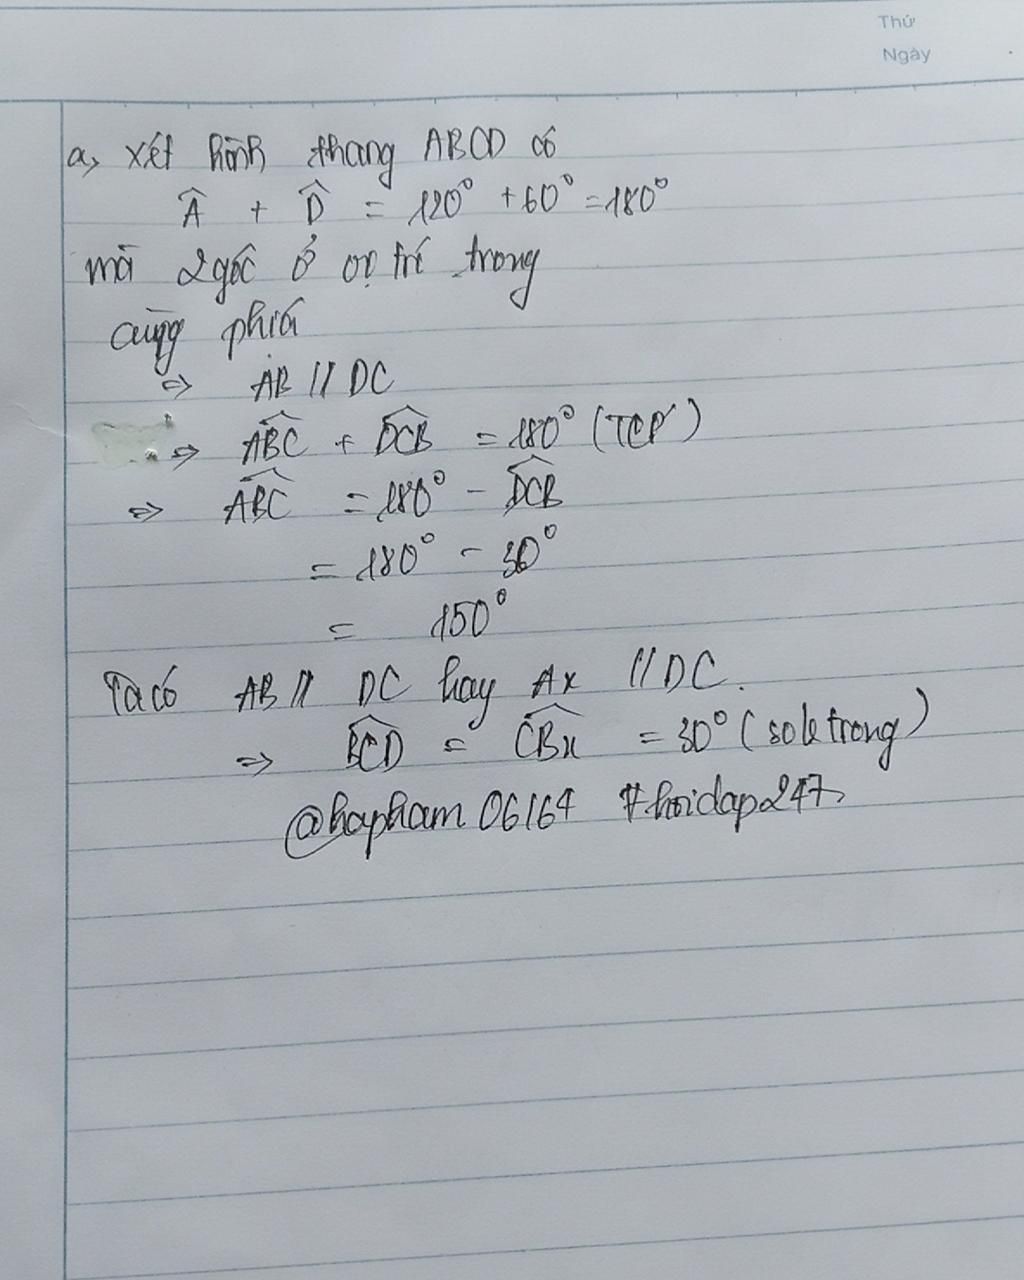 Thứ
Ngày
a, xét hình thang ABCD có
Â + D̂ = 120° + 60° = 180°
mà 2 góc ở vị trí trong
cùng phía
⇒ AB // DC
⇒ \widehat{ABC} + \widehat{DCB} = 180° (TCP)
⇒ \widehat{ABC} = 180° - \widehat{DCB}
= 180° - 30°
= 150°
Ta có AB // DC hay Ax // DC.
⇒ \widehat{BCD} = \widehat{CBx} = 30° (sole trong)
@hapham06164 #hoidap247